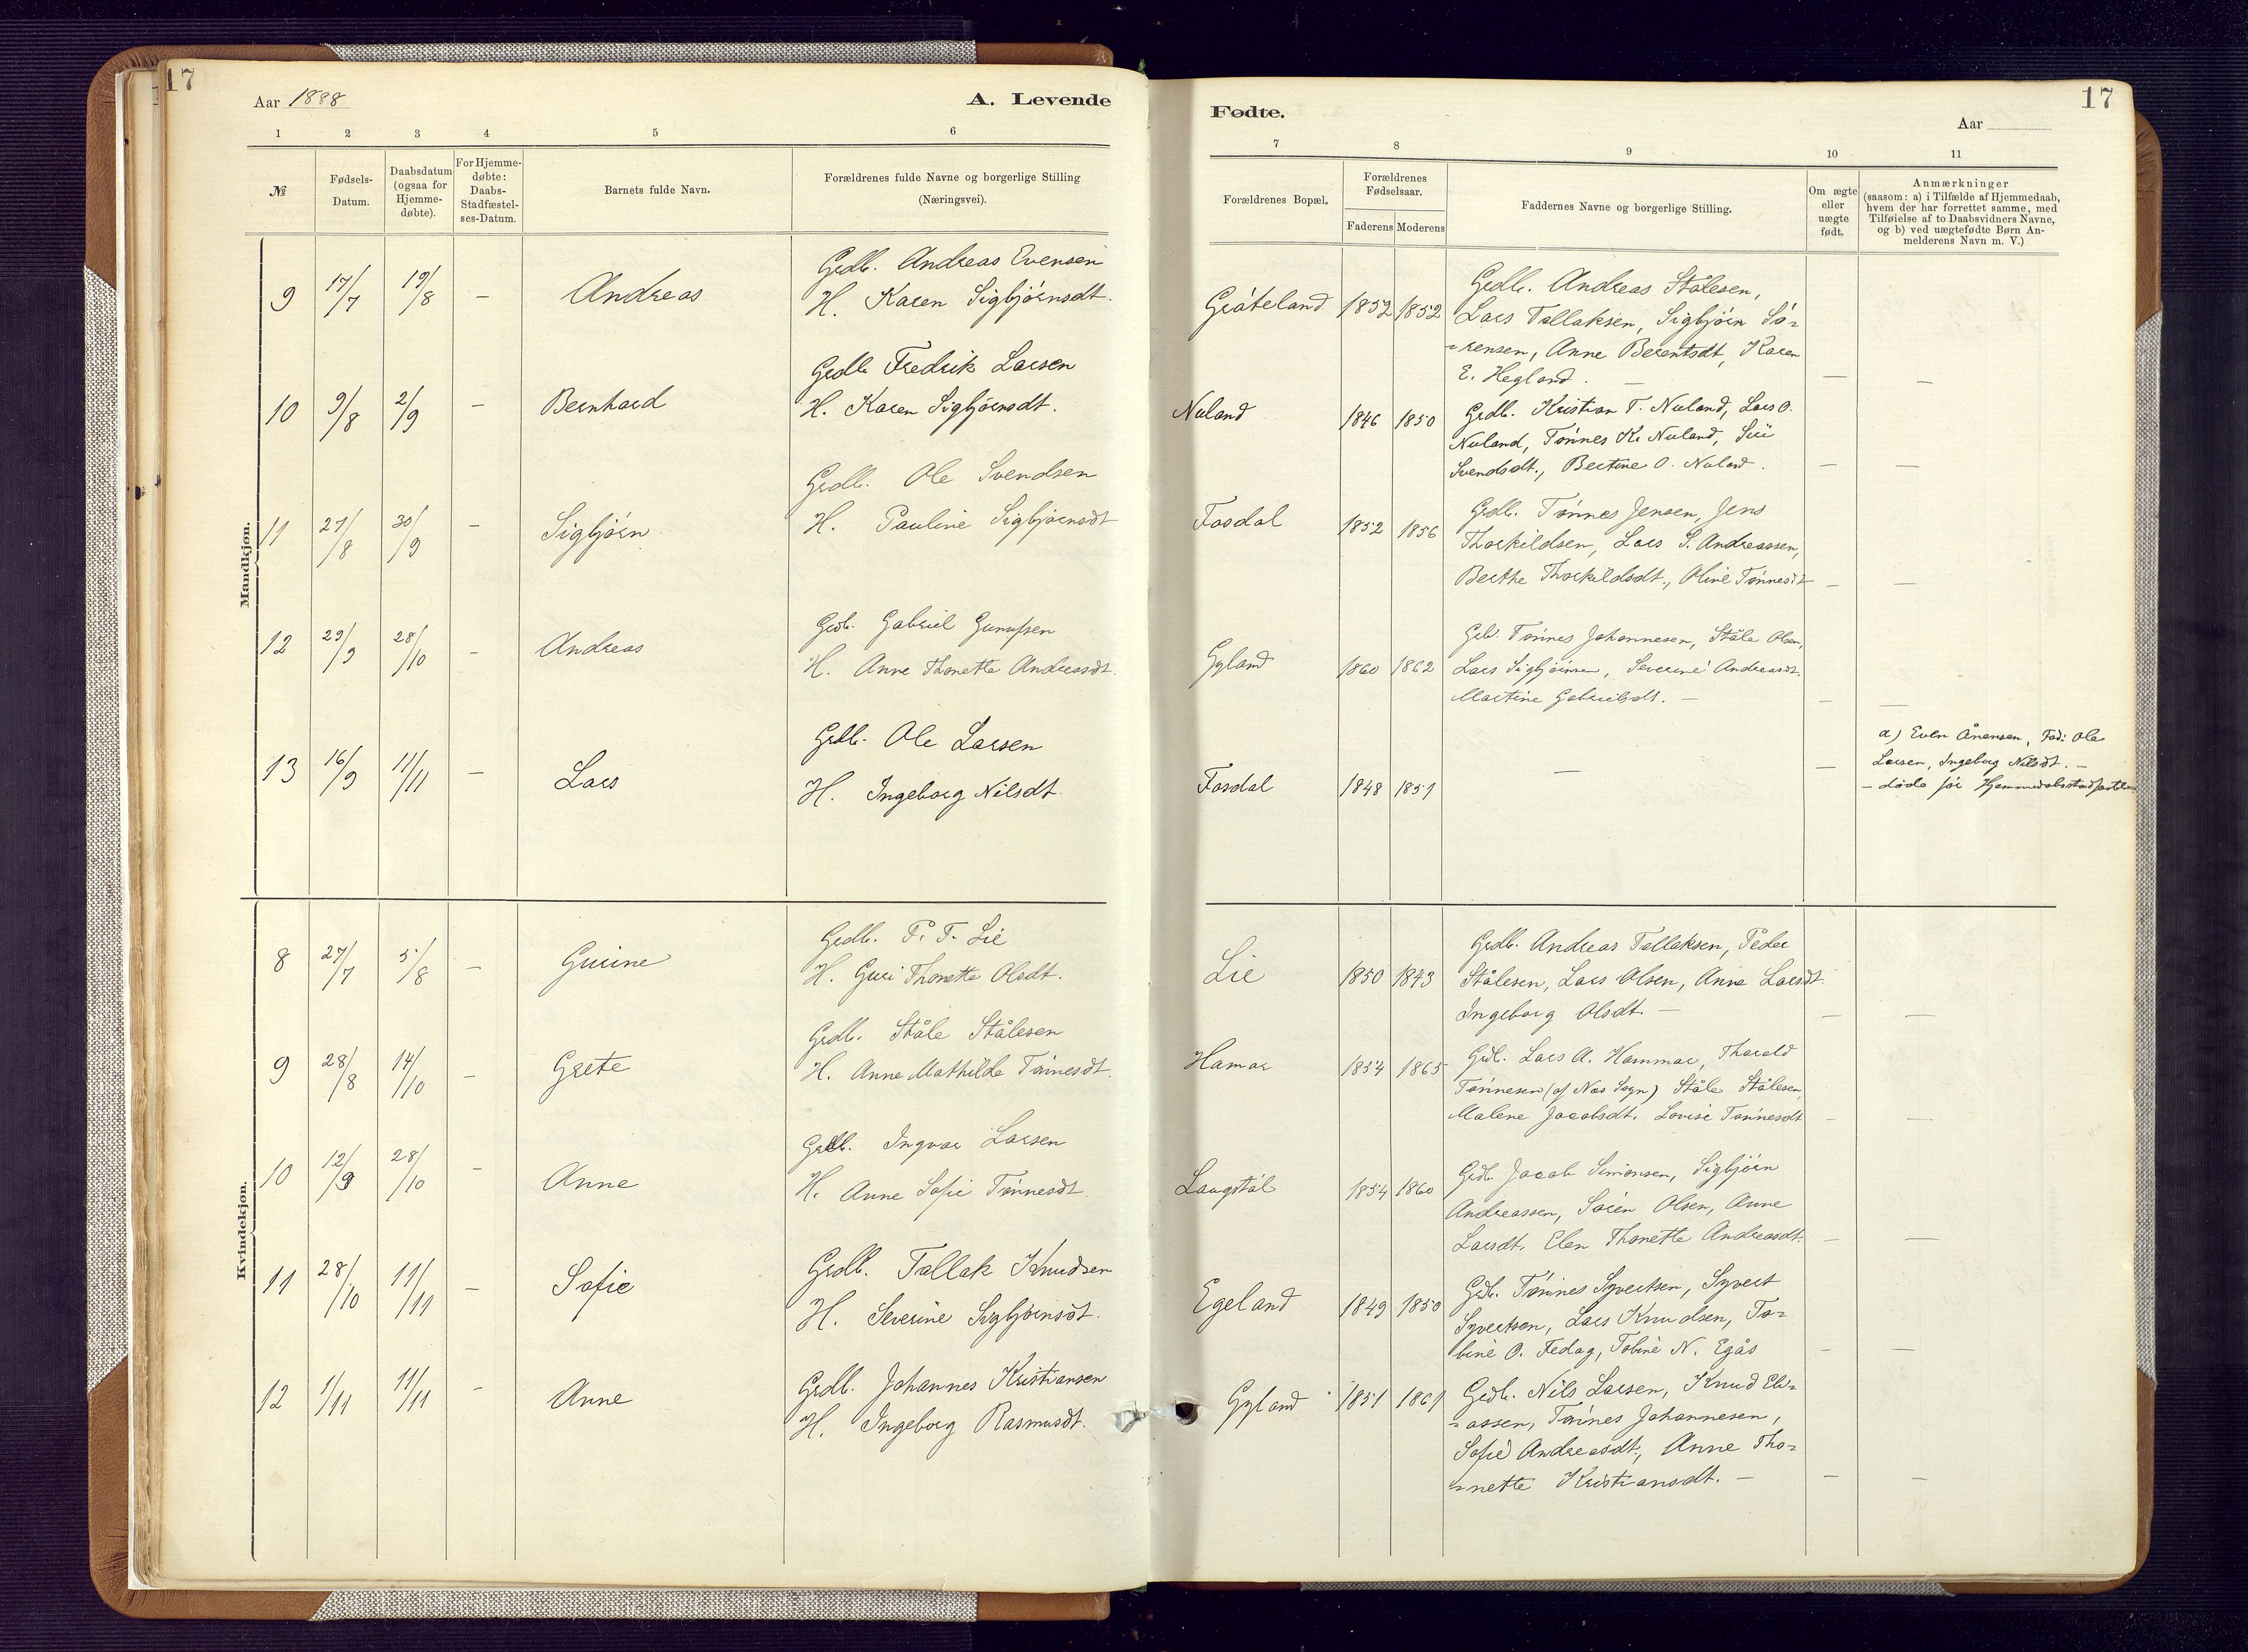 17
Aar 1888
A. Levende
1 2 3 4 5 6
№
Fødsels-
Datum.
Daabsdatum
(ogsaa for
Hjemme-
døbte).
For Hjemme-
døbte:
Daabs-
Stadfæstel-
ses-Datum.
Barnets fulde Navn.
Forældrenes fulde Navne og borgerlige Stilling
(Næringsvei).
Mandkjøn.
9 17/7 19/8 – Andreas
Grdb. Andreas Evensen
H. Karen Sigbjørnsdt.
10 9/8 2/9 – Bernhard
Grdb. Fredrik Larsen
H. Karen Sigbjørnsdt.
11 27/8 30/9 – Sigbjørn
Grdb. Ole Svendsen
H. Pauline Sigbjørnsdt
12 29/9 28/10 – Andreas
Grdb. Gabriel Gunufsen
H. Anne Thonette Andreasdt.
13 16/9 11/11 – Lars
Grdb. Ole Larsen
H. Ingeborg Nilsdt.
Kvindekjøn.
8 27/7 5/8 – Gurine
Grdb. P. T. Lie
H. Guri Thonette Olsdt.
9 28/8 14/10 – Grete
Grdb. Ståle Stålesen
H. Anne Mathilde Tønnesdt.
10 12/9 28/10 – Anne
Grdb. Ingvar Larsen
H. Anne Sofie Tønnesdt.
11 28/10 11/11 – Sofie
Grdb. Tallak Knudsen
H. Severine Sigbjørnsdt.
12 1/11 11/11 – Anne
Grdb. Johannes Kristiansen
H. Ingeborg Rasmusdt.
17
Fødte.
Aar
7 8 9 10 11
Forældrenes Bopæl.
Forældrenes
Fødselsaar.
Faderens Moderens
Faddernes Navne og borgerlige Stilling.
Om ægte
eller
uægte
født.
Anmærkninger
(saasom: a) i Tilfælde af Hjemmedaab,
hvem der har forrettet samme, med
Tilføielse af to Daabsvidners Navne,
og b) ved uægtefødte Børn An-
melderens Navn m. V.)
Gråteland 1852 1852
Grdb. Andreas Stålesen,
Lars Tallaksen, Sigbjørn Sø-
-rensen, Anne Berentsdt, Karen
E. Hegland. – – –
Nuland 1846 1850
Grdb. Kristian T. Nuland, Lars O.
Nuland, Tønnes Kr. Nuland, Siri
Svendsdt., Bertine O. Nuland. – –
Fosdal 1852 1856
Grdb. Tønnes Jensen, Jens
Thorkildsen, Lars S. Andreassen,
Berthe Thorkildsdt., Oline Tønnesdt – –
Gyland 1860 1862
Grdb. Tønnes Johannesen, Ståle Olsen,
Lars Sigbjørnsen, Severine Andreasdt.
Martine Gabrielsdt. – – –
Fosdal 1848 1851 – –
a) Even Ånensen, Fad: Ole
Larsen, Ingeborg Nilsdt. –
– døde før
Lie 1850 1843
Grdb. Andreas Tallaksen, Peder
Stålesen, Lars Olsen, Anne Larsdt.
Ingeborg Olsdt. – – –
Hamar 1854 1865
Grdb. Lars A. Hammar, Tharald
Tønnesen (af Nes Sogn) Ståle Stålesen,
Malene Jacobsdt. Lovise Tønnesdt – –
Laugstøl 1854 1860
Grdb. Jacob Simonsen, Sigbjørn
Andreassen, Søren Olsen, Anne
Larsdt. Elen Thonette Andreasdt. – –
Egeland 1849 1850
Grdb. Tønnes Syvertsen, Syvert
Syvertsen, Lars Knudsen, To-
bine O. Fedog, Tobine N. Egås – –
Gyland 1851 1861
Grdb. Nils Larsen, Knud Eli-
-assen, Tønnes Johannesen,
Sofie Andreasdt., Anne Tho-
-nette Kristiansdt. – – –